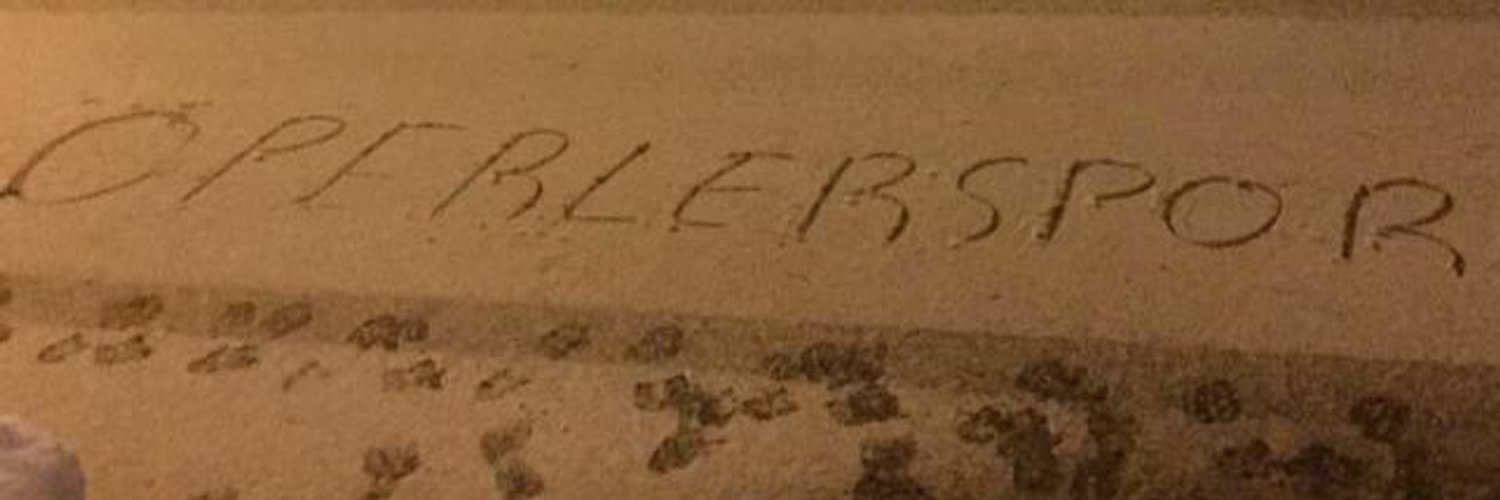 ÖPERLERSPOR